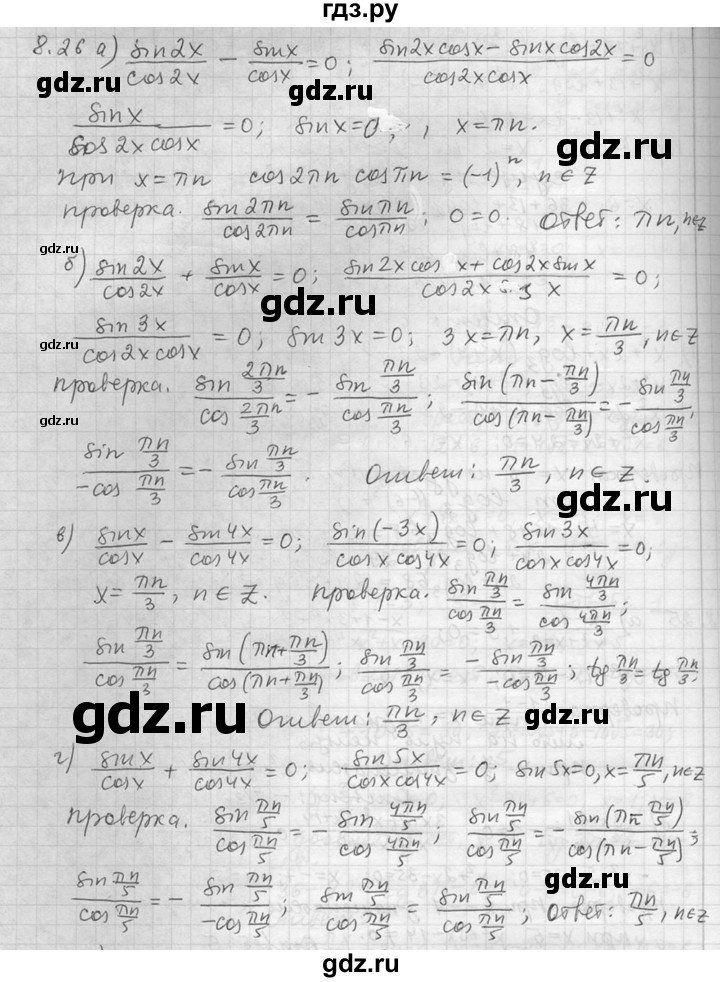 гдз.ру
8.26 а) sin2x/cos2x − sinx/cosx = 0; (sin2x cosx − sinx cos2x)/(cos2x cosx) = 0
gdz.ru gdz.ru gdz.ru
sinx/(cos2x cosx) = 0; sinx = 0, , x = πn.
gdz.ru
при x = πn cos2πn cosπn = (-1)ⁿ, n∈Z
проверка. sin2πn/cos2πn = sinπn/cosπn; 0 = 0. ответ: πn, n∈z
gdz.ru gdz.ru
б) sin2x/cos2x + sinx/cosx = 0; (sin2x cos x + cos2x sinx)/(cos2x x) = 0;
gdz.ru
sin3x/(cos2x cosx) = 0; sin3x = 0; 3x = πn, x = πn/3, n∈Z
gdz.ru
проверка. sin 2πn/3 / cos 2πn/3 = − sin πn/3 / cos πn/3; sin(πn − πn/3)/cos(πn − πn/3) = − sin πn/3 / cos πn/3,
gdz.ru gdz.ru
sin πn/3 / −cos πn/3 = − sin πn/3 / cos πn/3. Ответ: πn/3, n∈Z.
gdz.ru
в) sinx/cosx − sin4x/cos4x = 0; sin(−3x)/(cosx cos4x) = 0; sin3x/(cosx cos4x) = 0;
gdz.ru
x = πn/3, n∈Z. проверка. sin πn/3 / cos πn/3 = sin 4πn/3 / cos 4πn/3;
gdz.ru
sin πn/3 / cos πn/3 = sin(πn + πn/3)/cos(πn + πn/3); sin πn/3 / cos πn/3 = − sin πn/3 / −cos πn/3; tg πn/3 = tg πn/3.
gdz.ru gdz.ru
Ответ: πn/3, n∈Z
г) sinx/cosx + sin4x/cos4x = 0; sin5x/(cosx cos4x) = 0; sin5x = 0, x = πn/5, n∈Z
gdz.ru
проверка. sin πn/5 / cos πn/5 = − sin 4πn/5 / cos 4πn/5; sin πn/5 / cos πn/5 = − sin(πn − πn/5)/cos(πn − πn/5);
gdz.ru
sin πn/5 / cos πn/5 = − sin πn/5 / −cos πn/5; sin πn/5 / cos πn/5 = sin πn/5 / cos πn/5; ответ: πn/5, n∈z
gdz.ru gdz.ru
гдз.ру